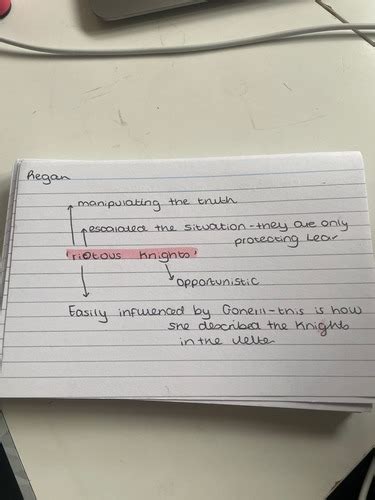 Regan
manipulating the truth
escalated the situation - they are only
protecting Lear
'riotous knights'
opportunistic
Easily influenced by Goneril - this is how
she described the knights
in the letter